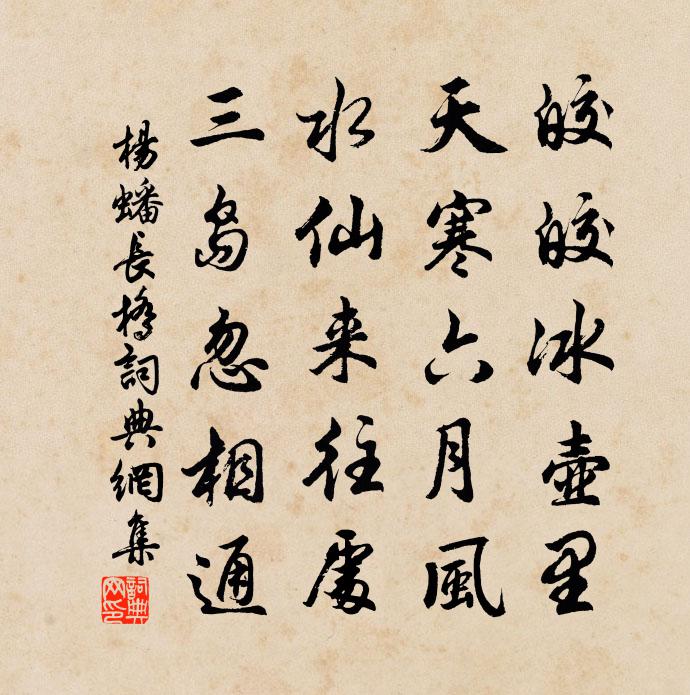 皎皎冰壺里
天寒六月風
水仙来往處
三島忽相通
楊蟠長橋詞典網集
詞典